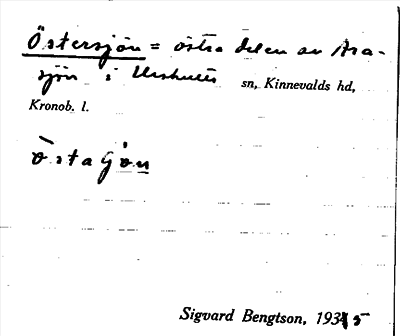 Östersjön = östra delen av Åra-
sjön i Urshults sn, Kinnevalds hd,
Kronob. l.
östa
Sigvard Bengtson, 1935